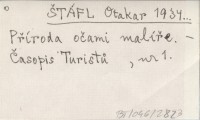 ŠTÁFL Otakar 1934...
Příroda očami malíře. –
Časopis Turistů, nr 1.